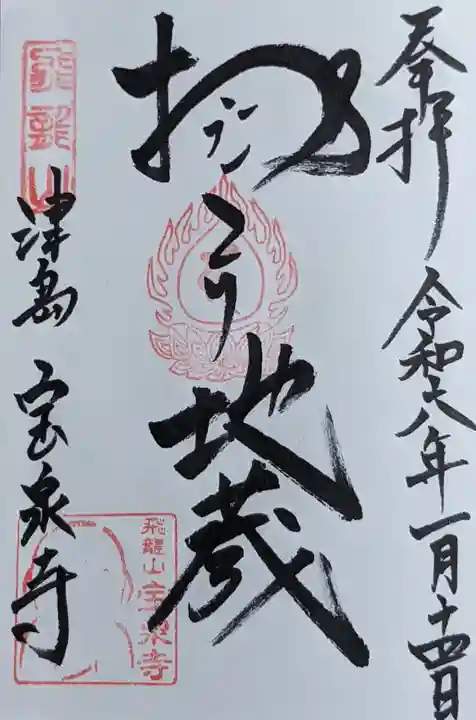 奉拝
令和六年一月十四日
おこり地蔵
飛龍山
津島 宝泉寺
飛龍山
宝泉寺